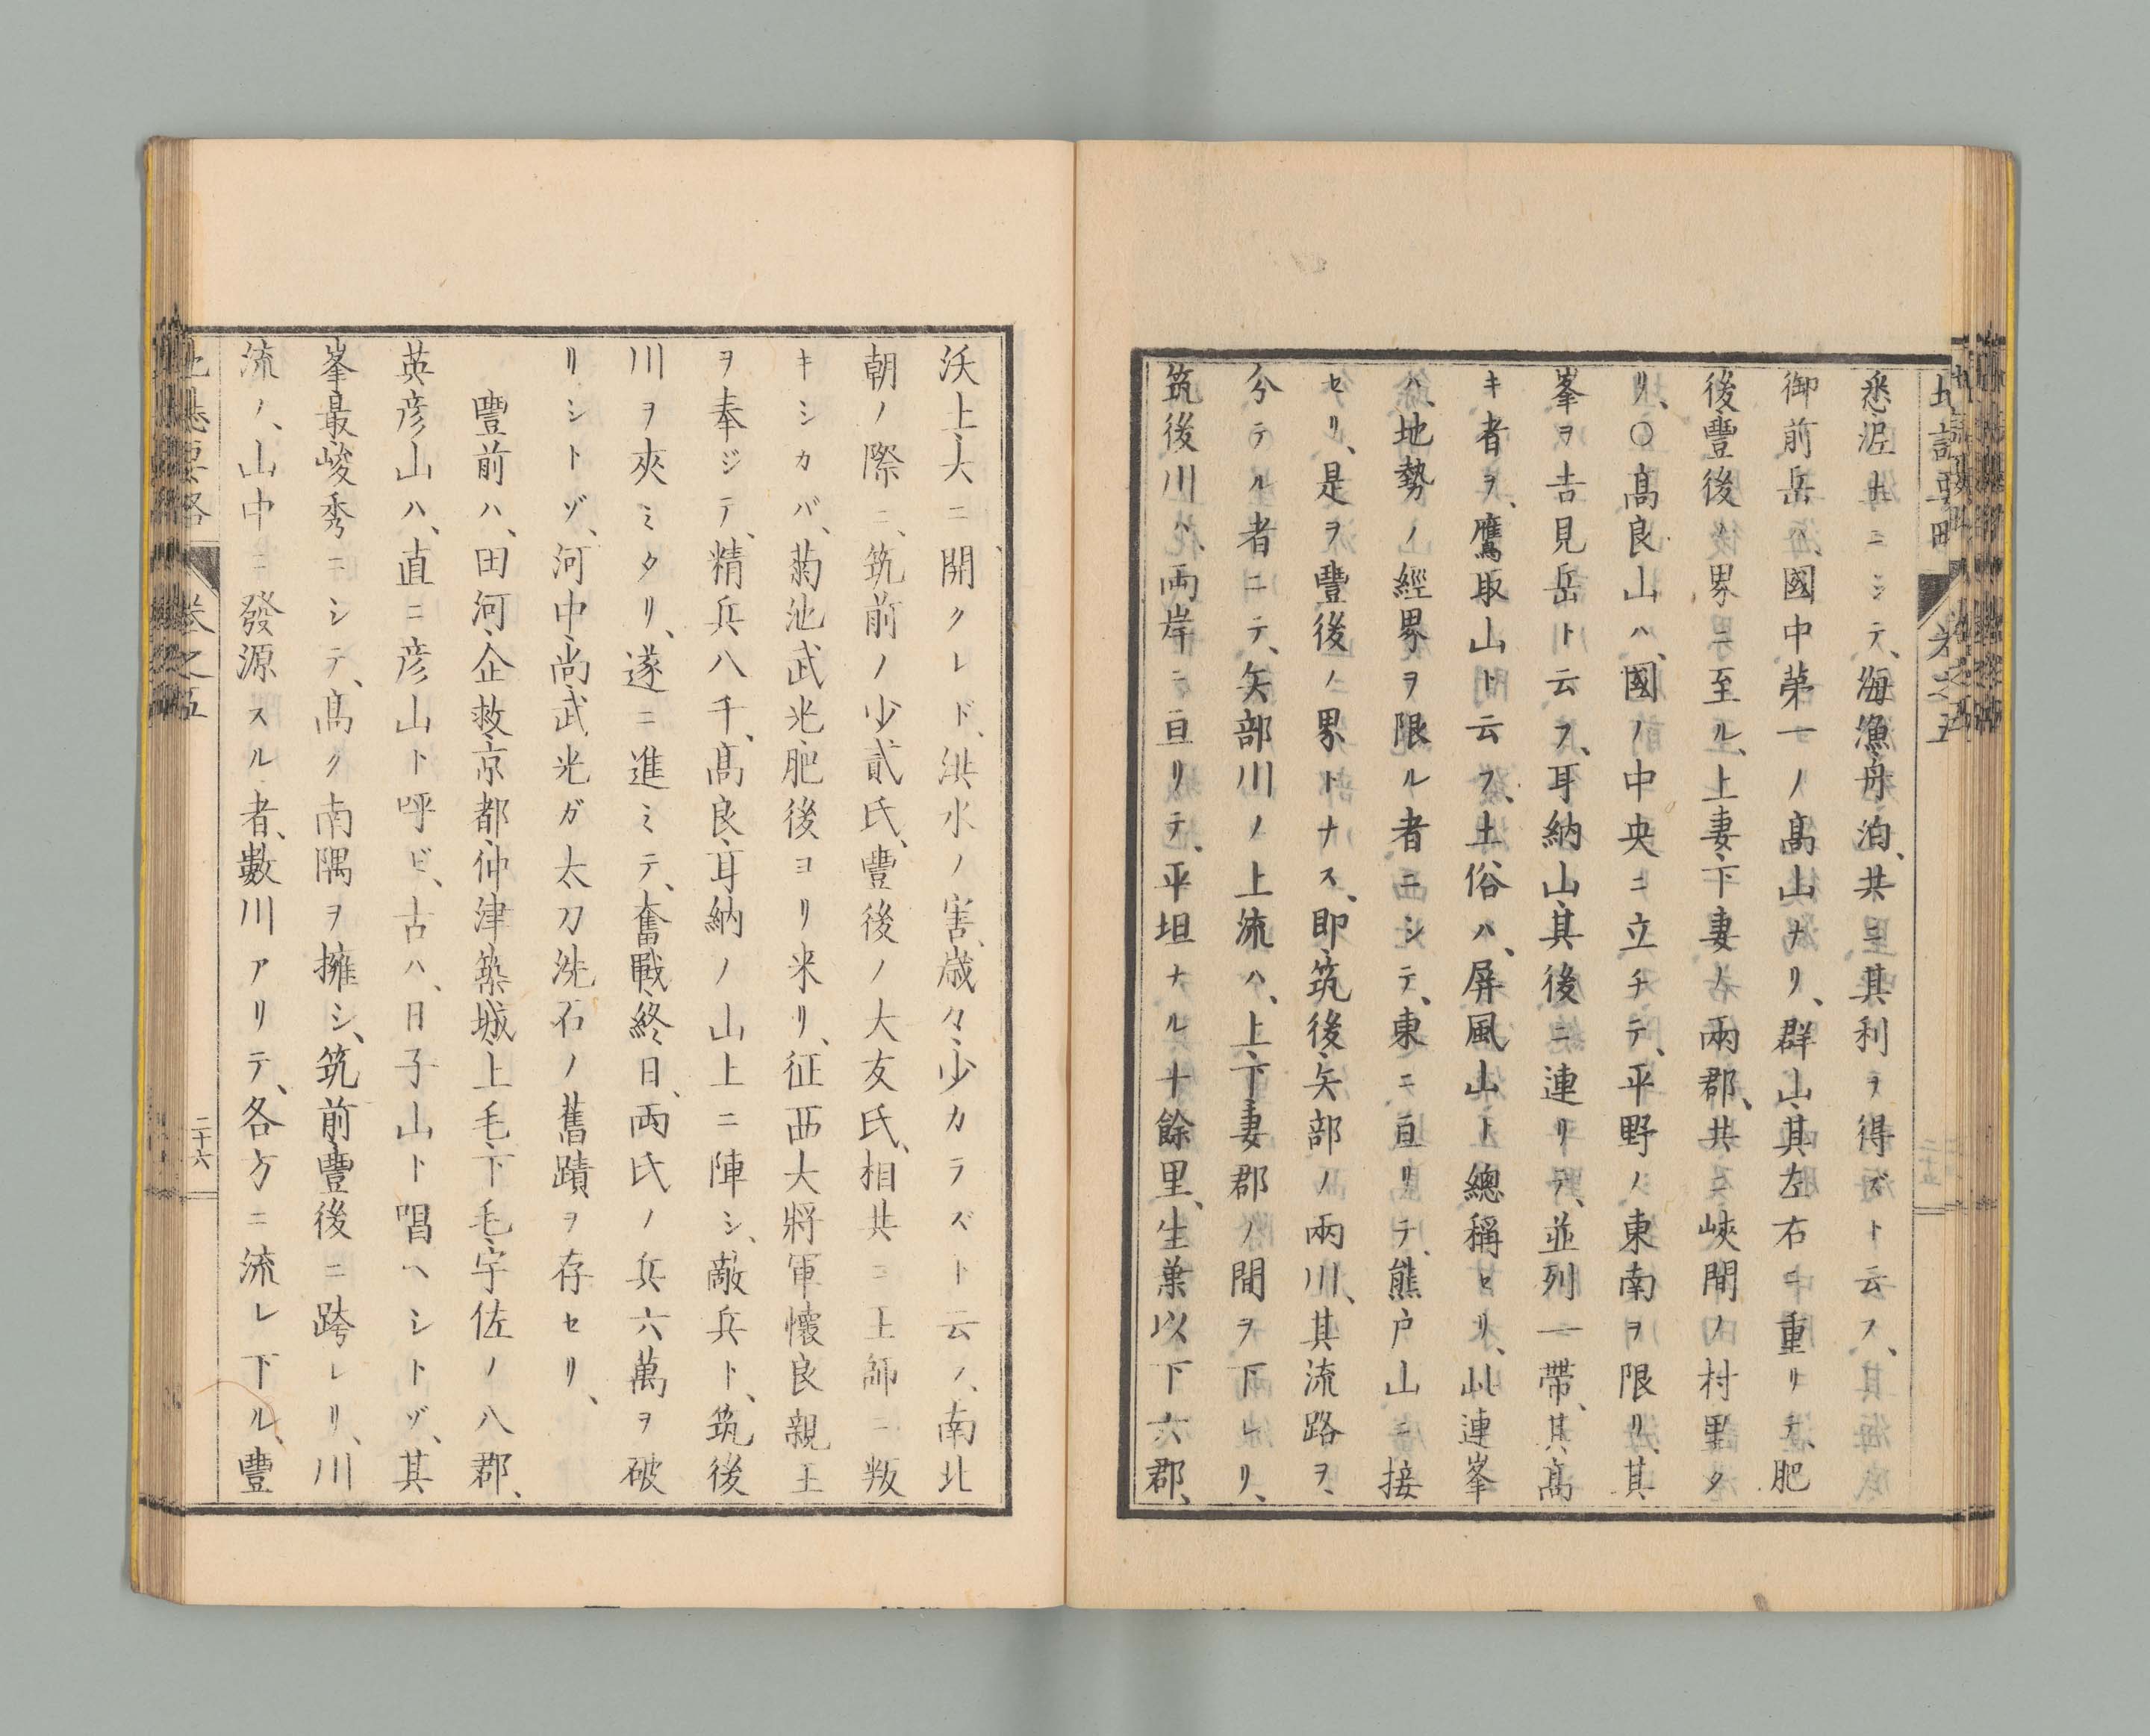 悉泥ナニシテ、海漁舟泊、共ニ其利ヲ得ズト云フ、
御前岳ハ、國中第一ノ高山ナリ、群山其左右ニ重リテ、肥
後豐後界ニ至ル、上妻下妻ノ兩郡、共ニ峽間ノ村里タ
リ、○高良山ハ、國ノ中央ニ立チテ、平野ノ東南ヲ限リ、其
峯ヲ吉見岳ト云フ、耳納山其後ニ連リテ、並列一帶、其高
キ者ヲ、鷹取山ト云フ、土俗ハ、屏風山ト總稱セリ、此連峯
ハ、地勢ノ經界ヲ限ル者ニシテ、東ニ亘リテ、熊戸山ニ接
セリ、是ヲ豐後ノ界トナス、即筑後矢部ノ兩川、其流路ヲ
分テル者ニテ、矢部川ノ上流ハ、上下妻郡ノ間ヲ下レリ、
筑後川ハ、兩岸ニ亘リテ、平坦ナル十餘里、生葉以下六郡、
沃土大ニ開クレド、洪水ノ害、歳々少カラズト云ノ、南北
朝ノ際ニ、筑前ノ少貳氏、豐後ノ大友氏、相共ニ王師ニ叛
キシカバ、菊池武光肥後ヨリ來リ、征西大將軍懷良親王
ヲ奉ジテ、精兵八千、高良耳納ノ山上ニ陣シ、敵兵ト、筑後
川ヲ夾ミタリ、遂ニ進ミテ、奮戰終日、兩氏ノ兵六萬ヲ破
リシトゾ、河中尚武光ガ太刀洗石ノ舊蹟ヲ存セリ、
豐前ハ、田河企救京都仲津築城上毛下毛宇佐ノ八郡、
英彦山ハ、直ニ彦山ト呼ビ、古ハ、日子山ト唱ヘシトゾ、其
峯最峻秀ニシテ、高ク南隅ヲ擁シ、筑前豐後ニ跨レリ、川
流ノ、山中ニ發源スル者、數川アリテ、各方ニ流レ下ル、豐
地誌要略 卷之五
二十六